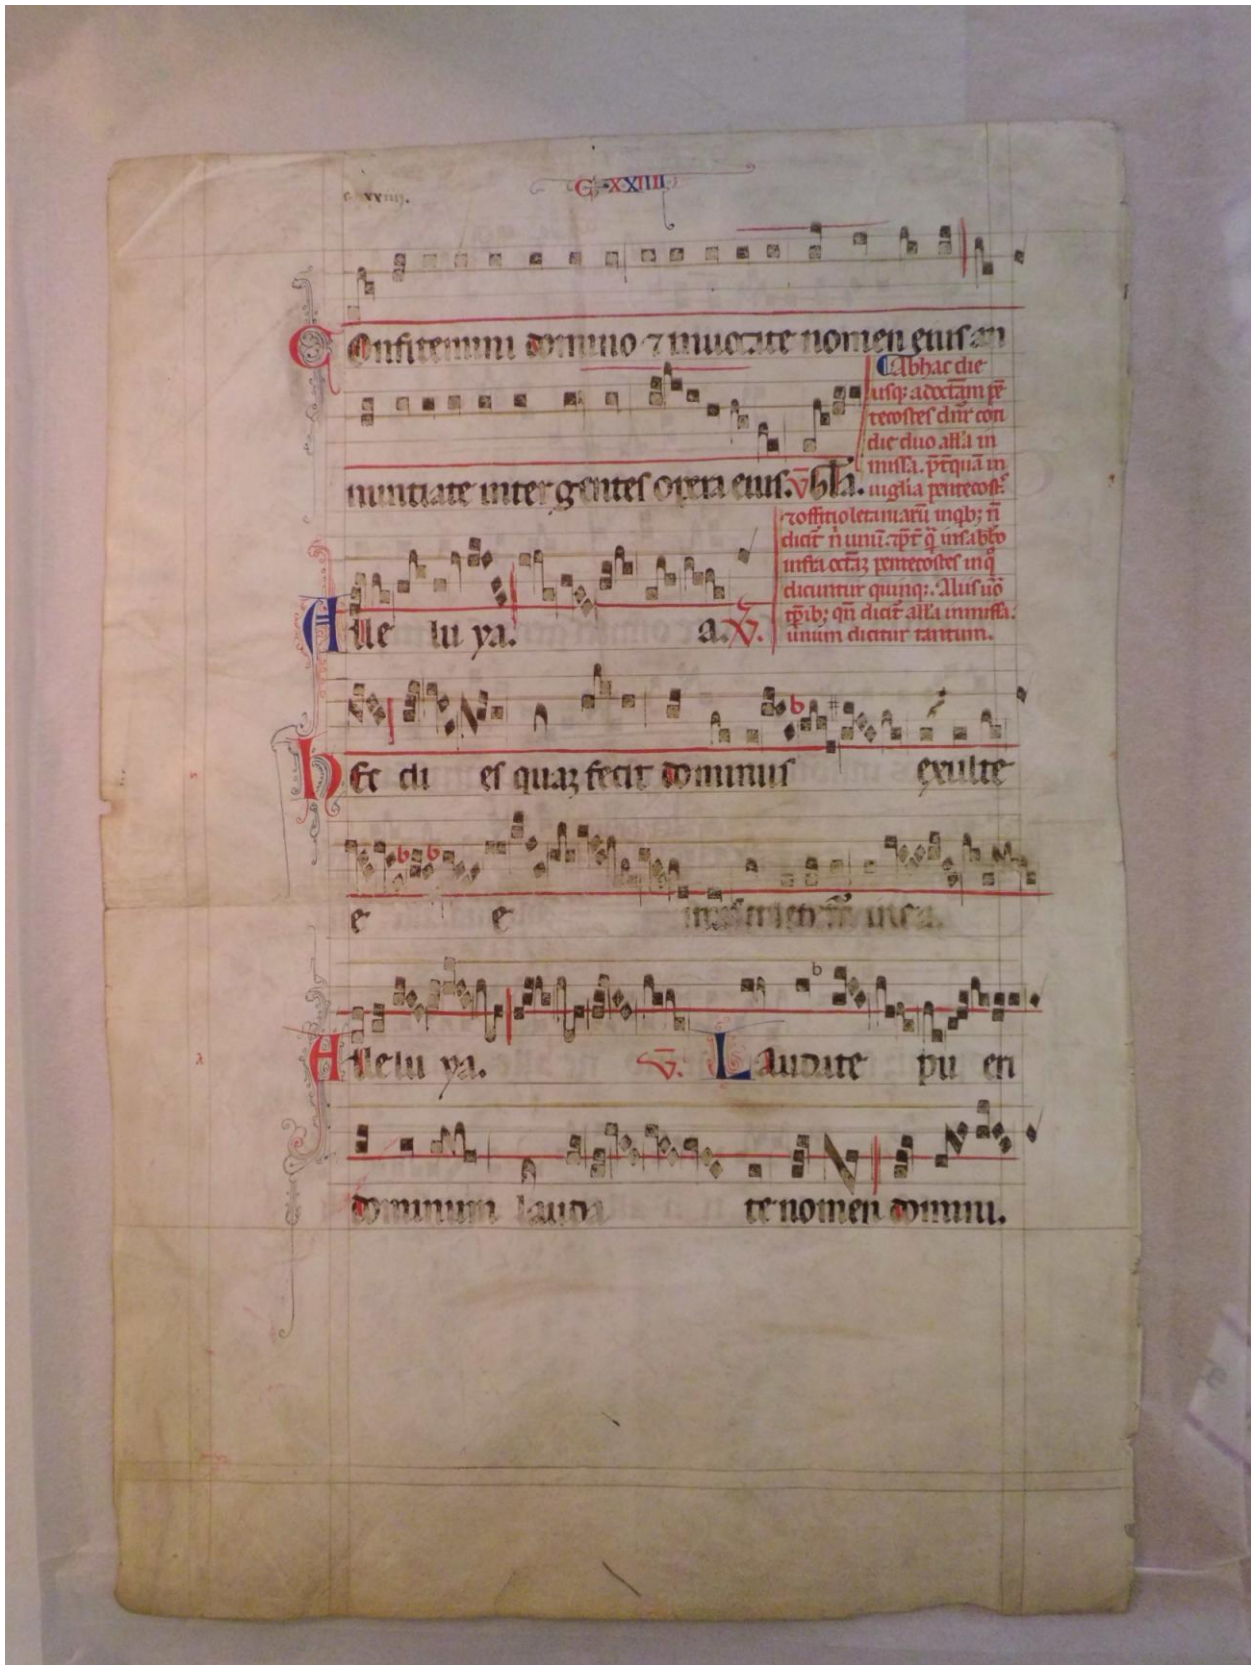 C XXIIII
c xxiiij.
Confitemini domino ⁊ inuocate nomen eius an
nuntiate inter gentes opera eius. v̄ Gl̄a.
Ab hac die
usq; ad octāam pē
tecostes dn̄r con
die duo all̄a in
missa. p̄t̄quā in
uiglia pentecost̄.
⁊ offitio letaniarū in qb; n̄
dicit̄ n̄ unū. ⁊ p̄t̄ q̄ in sabbo
infra octāz pentecostes in q̄
dicuntur quinq;. Alus uo
tp̄ib; qn̄ dicit̄ all̄a in missa.
unum dicitur tantum.
Alle lu ya. a. V̄.
hEc di es quaz fecit dominus exulte
e e
Alle lu ya. v̄. Laudate pu eri
dominum lauda te nomen domini.